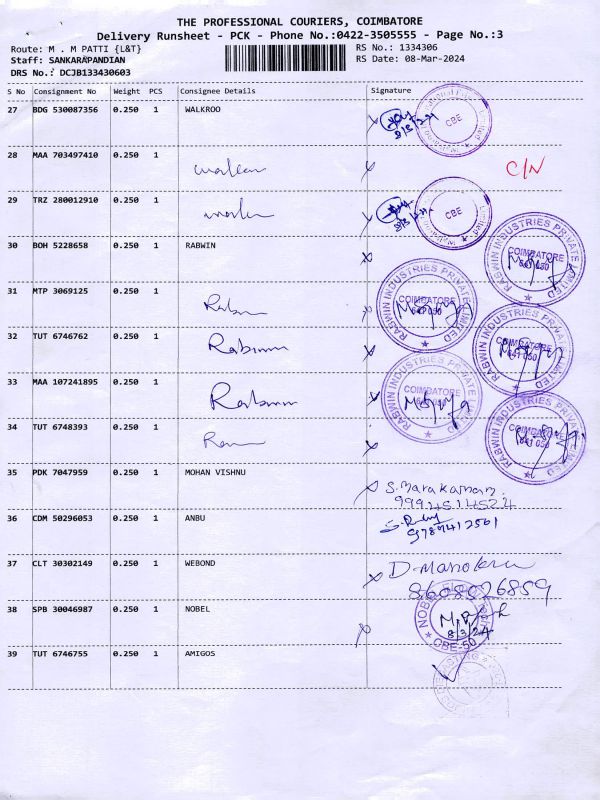 THE PROFESSIONAL COURIERS, COIMBATORE
Delivery Runsheet - PCK - Phone No.:0422-3505555 - Page No.:3
Route: M . M PATTI {L&T}
RS No.: 1334306
Staff: SANKARAPANDIAN
RS Date: 08-Mar-2024
DRS No.: DCJB133430603
S No Consignment No Weight PCS Consignee Details Signature
27 BDG 530087356 0.250 1 WALKROO
CBE
28 MAA 703497410 0.250 1
C/N
29 TRZ 280012910 0.250 1
CBE
30 BOH 5228658 0.250 1 RABWIN
RABWIN INDUSTRIES PRIVATE LIMITED
COIMBATORE
641 050
31 MTP 3069125 0.250 1
RABWIN INDUSTRIES PRIVATE LIMITED
COIMBATORE
641 050
32 TUT 6746762 0.250 1 Rabwin
RABWIN INDUSTRIES PRIVATE LIMITED
COIMBATORE
641 050
33 MAA 107241895 0.250 1 Rabwin
RABWIN INDUSTRIES PRIVATE LIMITED
COIMBATORE
641 050
34 TUT 6748393 0.250 1
RABWIN INDUSTRIES PRIVATE LIMITED
COIMBATORE
641 050
35 PDK 7047959 0.250 1 MOHAN VISHNU
9994514524
36 CDM 50296053 0.250 1 ANBU
9789412561
37 CLT 30302149 0.250 1 WEBOND
8608026859
38 SPB 30046987 0.250 1 NOBEL
8/3/24
39 TUT 6746755 0.250 1 AMIGOS